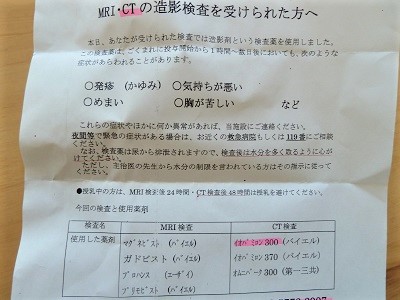 MRI・CTの造影検査を受けられた方へ
本日、あなたが受けられた検査では造影剤という検査薬を使用しました。
この検査薬は、ごくまれに投与開始から1時間~数日後においても、次のような
症状があらわれることがあります。
○発疹 (かゆみ) ○気持ちが悪い
○めまい ○胸が苦しい など
これらの症状やほかに何か異常があれば、当施設にご連絡ください。
夜間等で緊急の症状がある場合は、お近くの救急病院もしくは119番にご相談
ください。
なお、検査薬は尿から排泄されますので、検査後は水分を多く取るように心が
けてください。
ただし、主治医の先生から水分の制限を言われている方はその指示に従って
ください。
●授乳中の方は、MRI検査後24時間・CT検査後48時間は授乳を避けてください。
今回の検査と使用薬剤
検査名 MRI検査 CT検査
使用した薬剤 マグネビスト (バイエル) イオパミロン300 (バイエル)
ガドビスト (バイエル) イオパミロン370 (バイエル)
プロハンス (エーザイ) オムニパーク300 (第一三共)
プリモビスト (バイエル)